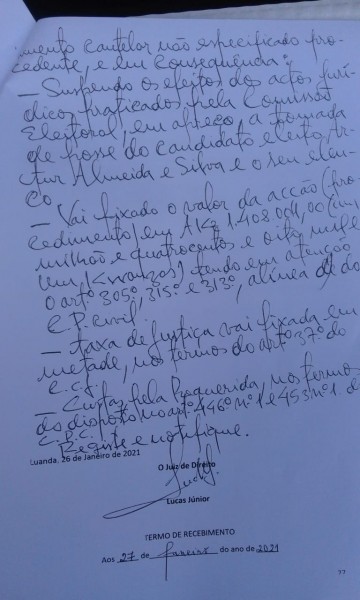 mento cautelar não especificado pro-
cedente, e em consequência:
— Suspendo os efeitos dos actos jurí-
dicos praticados pela Comissão
Eleitoral, em apreço, a tomada
de posse do candidato eleito, Ar-
tur Almeida e Silva e o seu elen-
co.
— Vai fixado o valor da acção (pro-
cedimento) em AKz 1.408.001,00 (um
milhão e quatrocentos e oito mil e
um Kwanzas) tendo em atenção
o artº 305º, 315º e 313º, alínea d do
C.P. Civil.
— taxa de Justiça vai fixada em
metade, nos termos do artº 37º do
C.C.J.
— Custas pela Requerida, nos termos
do disposto no artº 446º nº 1 e 453 nº 1 d
C.P.C.
Registe e notifique.
Luanda, 26 de Janeiro de 2021
O Juiz de Direito
Lucas Júnior
TERMO DE RECEBIMENTO
Aos 27 de Janeiro do ano de 2021